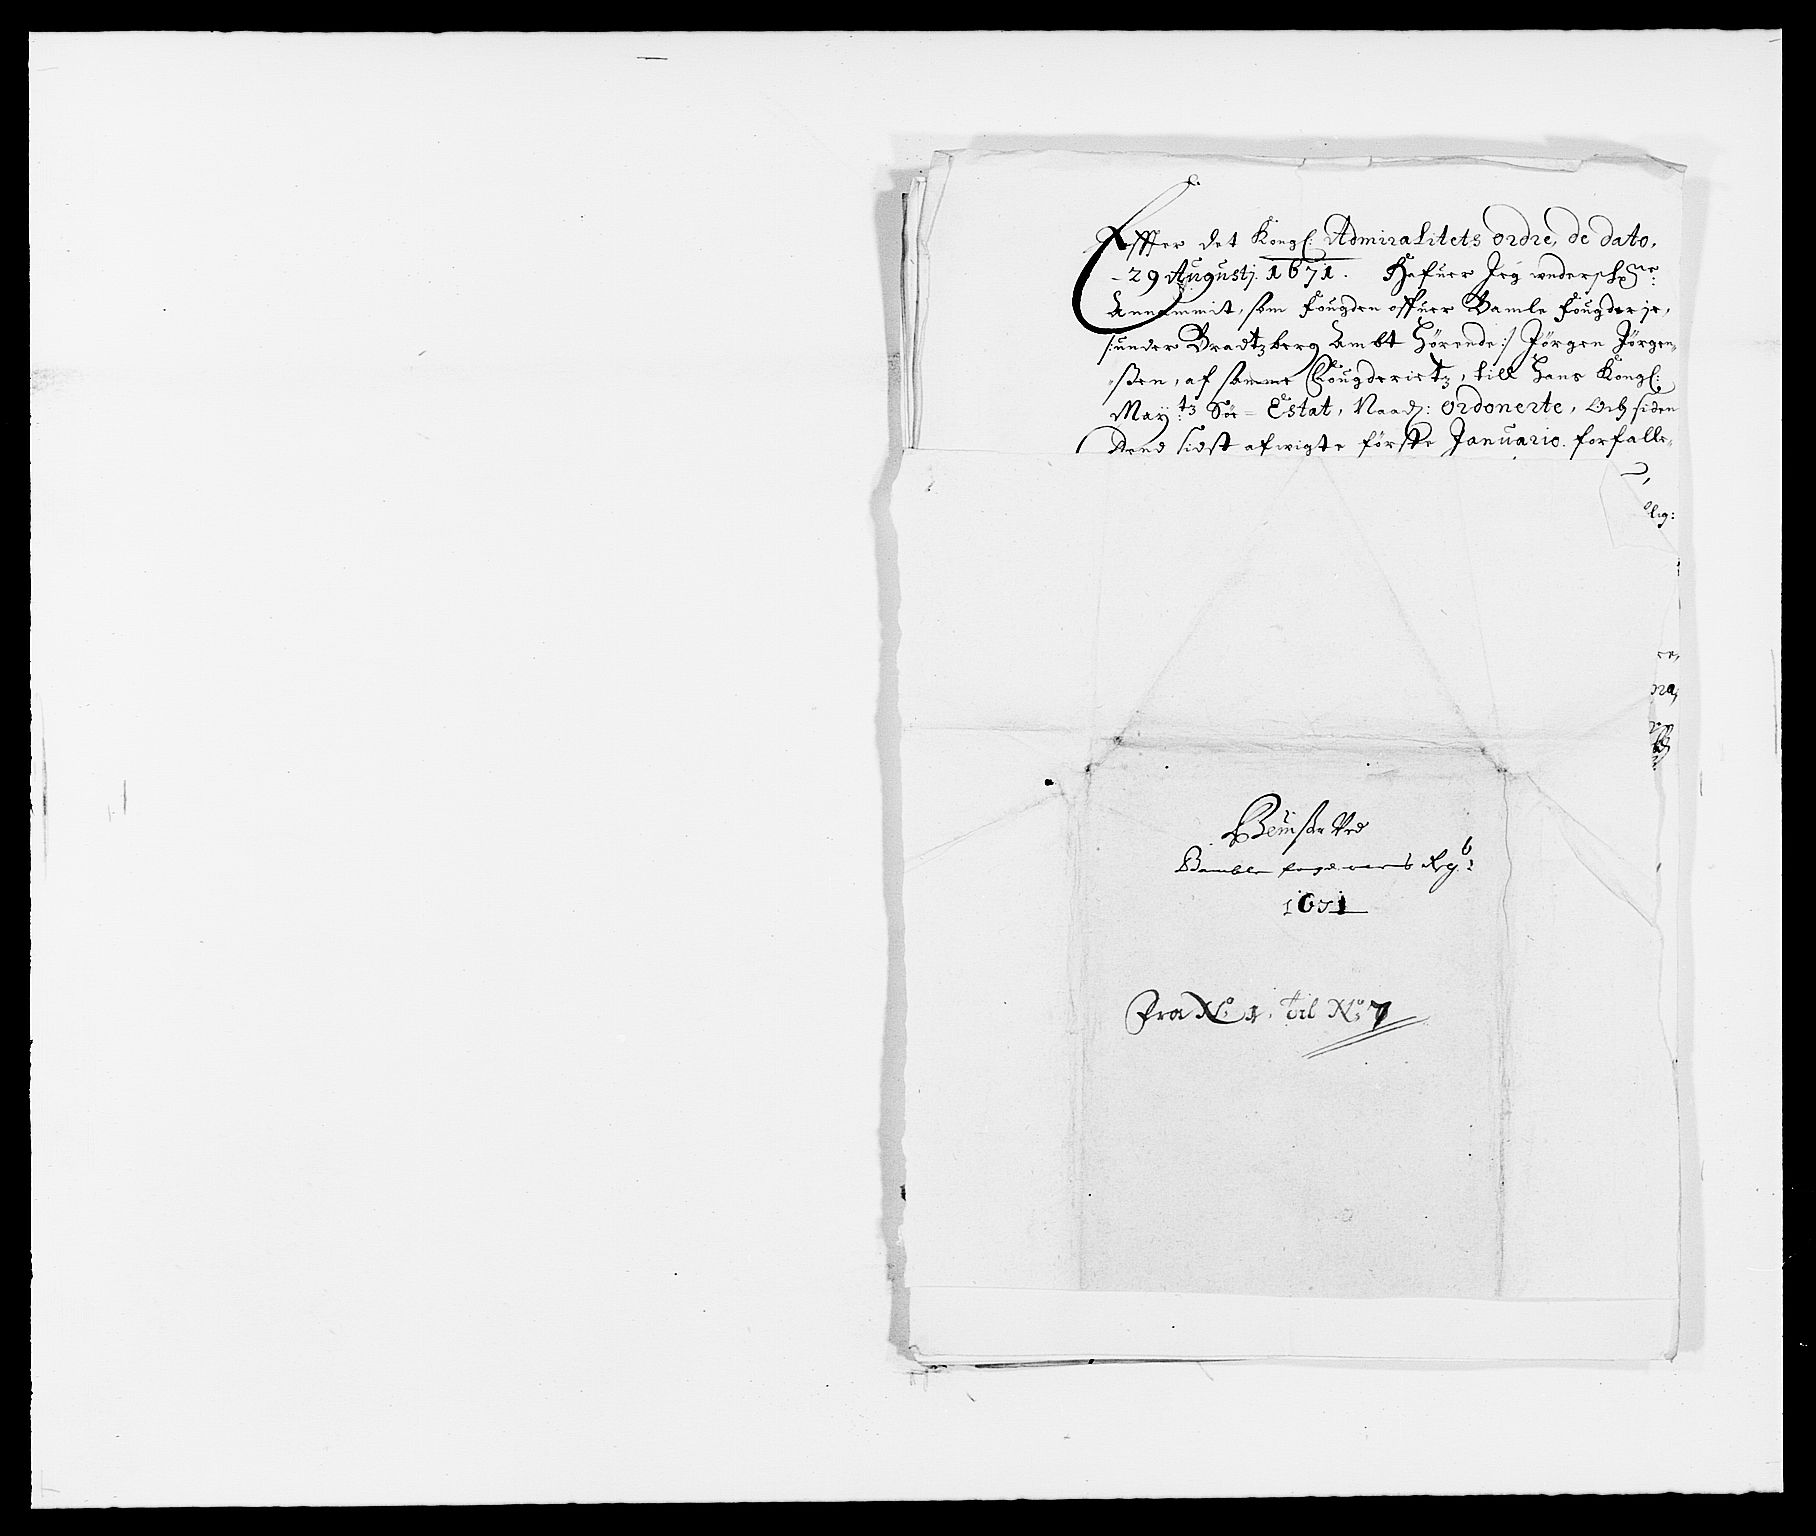 Effter det Kongl: Admiralitets ordre, de dato,
29 Augustj. 1671. Hafuer Jeg underschr:ne
Annammit, som fougden offuer Bamle fougderje,
/:under Bradtzberg Ambt Hørende:/ Jörgen Jörgen-
sßen, af samme Fougderietz, till Hans Kongl:
May:tz Söe-Estat, Naad: ordonerte, Och siden
dend sidst afvigte förste Januario. forfalle-
lig:
Beuißer Ved
Bamble fogderies Regb:
1671
Fra No 1. til No 7